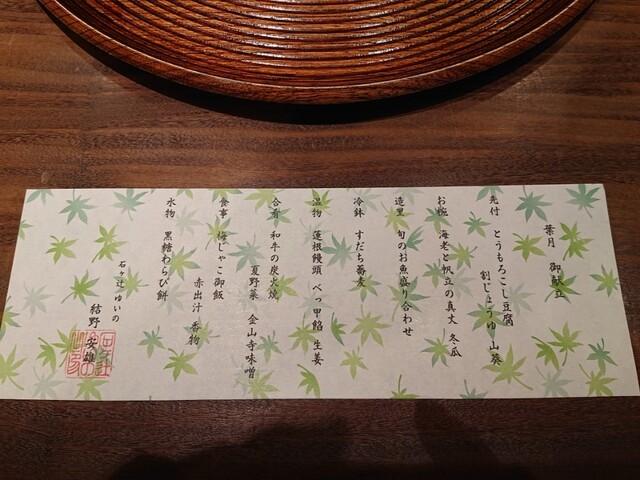 葉月 御献立
先付 とうもろこし豆腐
割じょうゆ 山葵
お椀 海老と帆立の真丈 冬瓜
造里 旬のお魚盛り合わせ
冷鉢 すだち蕎麦
温物 蓮根饅頭 べっ甲餡 生姜
合肴 和牛の炭火焼
夏野菜 金山寺味噌
食事 梅じゃこ御飯
赤出汁 香物
水物 黒糖わらび餅
石々辻 ゆいの
結野 安雄